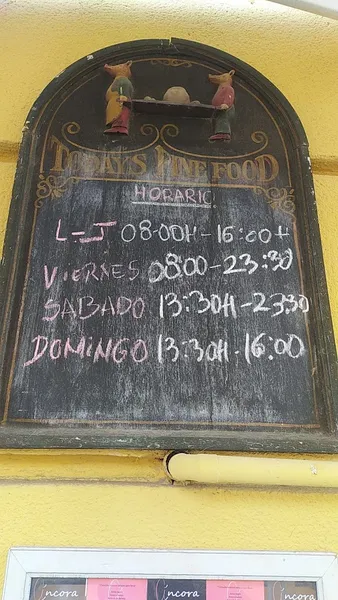 TODAY'S FINE FOOD
HORARIO
L-J 08:00H-16:00H
VIERNES 08:00-23:30
SABADO 13:30H-23:30
DOMINGO 13:30H-16:00
incora incora incora